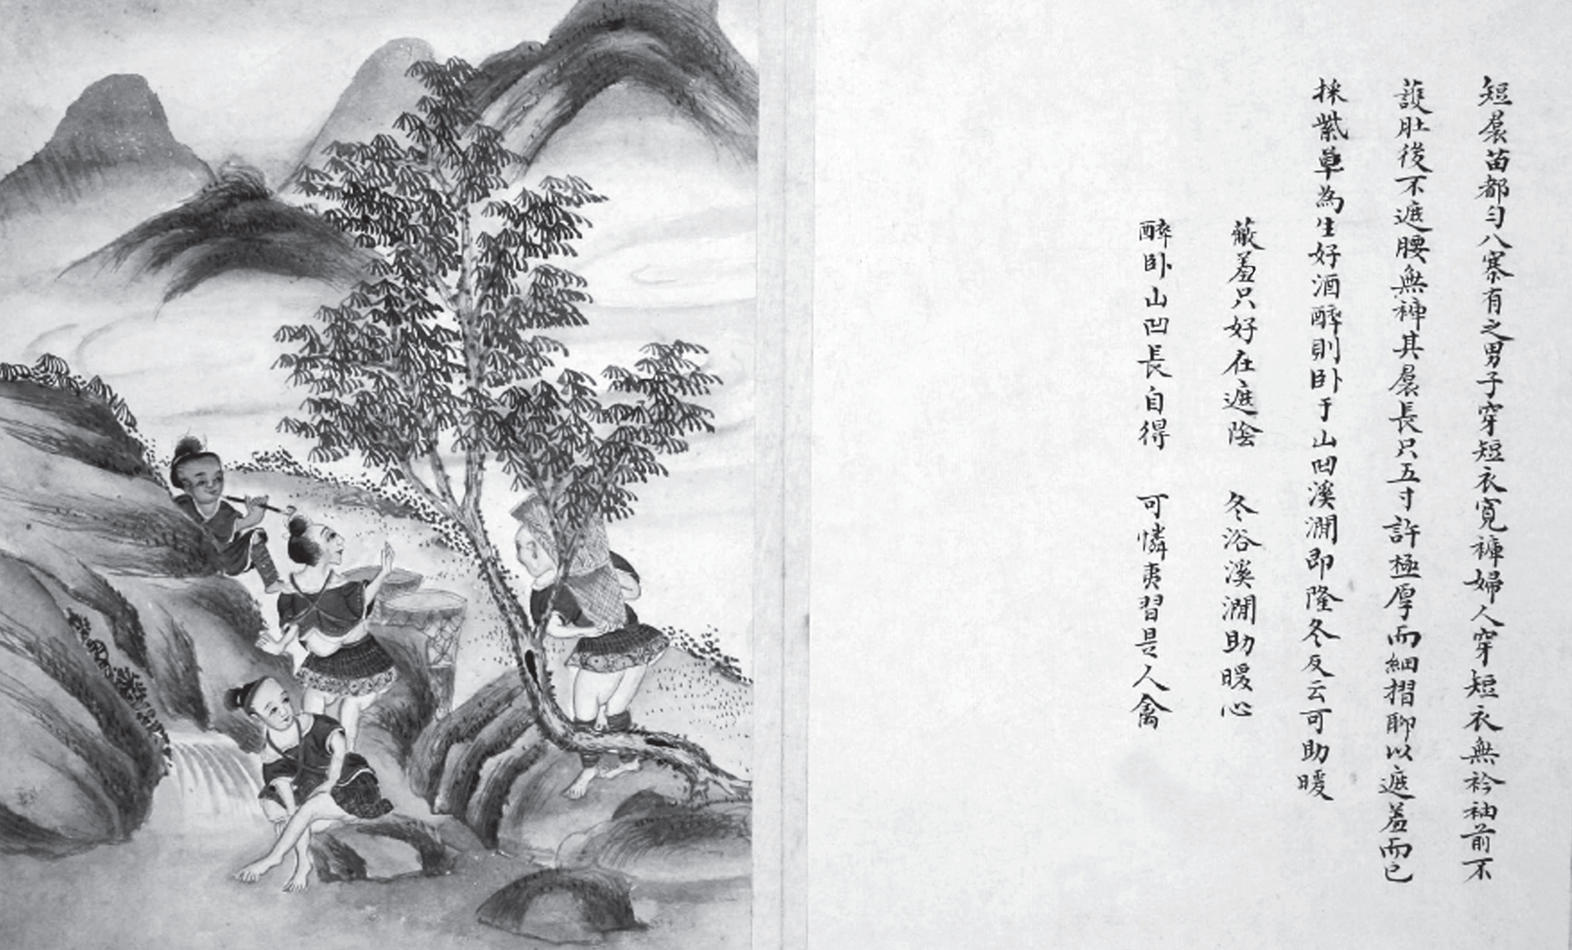 短裠苗都匀八寨有之男子穿短衣寛褲婦人穿短衣無衿袖前不
護肚後不遮腰無褲其裠長只五寸許極厚而細摺聊以遮羞而已
採紫草為生好酒醉則卧于山凹溪澗即隆冬反云可助暖
蔽羞只好在遮陰 冬浴溪澗助暖心
醉卧山凹長自得 可憐夷習是人禽